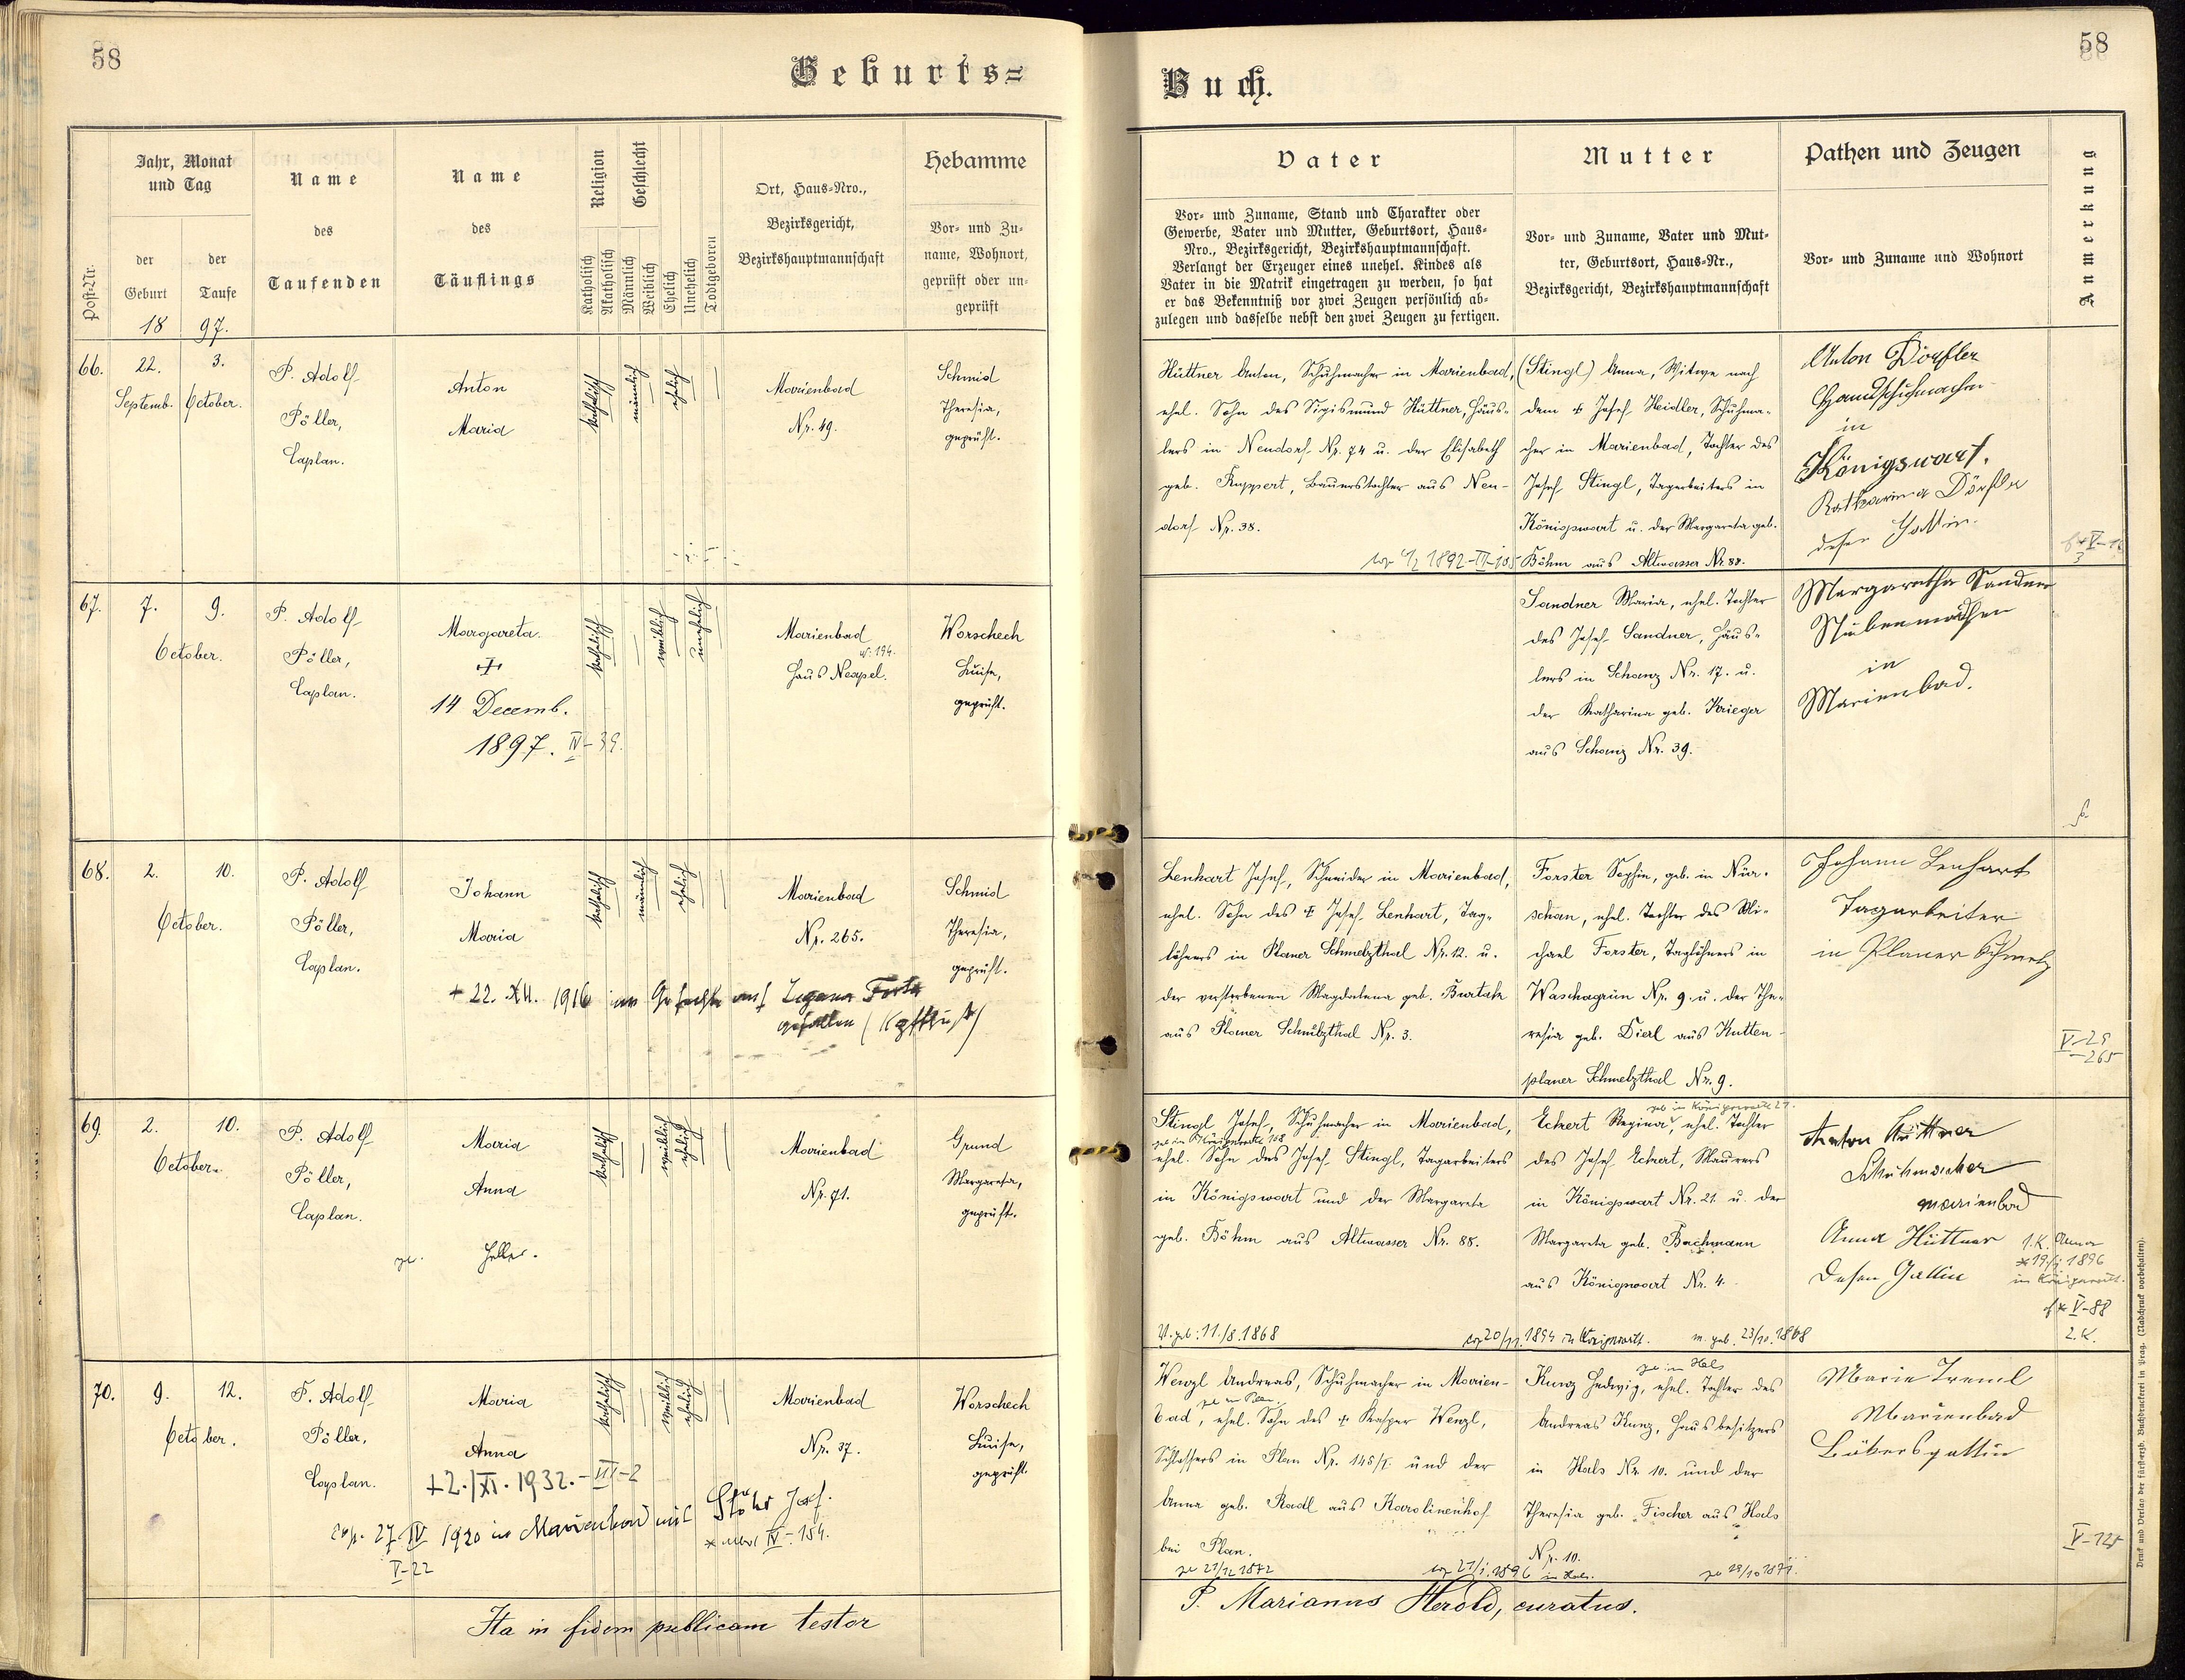 58
Geburts=
Post-Nr.
Jahr, Monat
und Tag
der
Geburt
der
Taufe
18 97.
Name
des
Taufenden
Name
des
Täuflings
Religion
Katholisch
Akatholisch
Geschlecht
Männlich
Weiblich
Ehelich
Unehelich
Todtgeboren
Ort, Haus-Nro.,
Bezirksgericht,
Bezirkshauptmannschaft
Hebamme
Vor- und Zu-
name, Wohnort,
geprüft oder un-
geprüft
66.
22.
Septemb.
3.
October.
P. Adolf
Pöller,
Caplan.
Anton
Maria
katholisch
männlich
ehelich
Marienbad
Nr. 49.
Schmid
Theresia,
geprüft.
67.
7. 9.
October.
P. Adolf
Pöller,
Caplan.
Margareta.
14 Decemb.
1897. IV-39.
katholisch
weiblich
unehelich
Marienbad
N: 194.
Haus Neapel.
Worschech
Luise,
geprüft.
68.
2. 10.
October.
P. Adolf
Pöller,
Caplan.
Johann
Maria
+ 22. XII. 1916 im Gefechte auf
gefallen (Kopfschuß)
katholisch
männlich
ehelich
Marienbad
Nr. 265.
Schmid
Theresia,
geprüft.
69.
2. 10.
October.
P. Adolf
Pöller,
Caplan.
Maria
Anna
katholisch
weiblich
ehelich
Marienbad
Nr. 71.
Grund
Margareta,
geprüft.
70.
9. 12.
October.
P. Adolf
Pöller,
Caplan.
Maria
Anna
+2./XI. 1932. - VII-2
cop. 27. IV 1920 in Marienbad mit Stöhr Josef.
IV-154.
V-22
katholisch
weiblich
ehelich
Marienbad
Nr. 37.
Worschech
Luise,
geprüft.
Ita in fidem publicam testor
58
Buch.
Vater
Vor- und Zuname, Stand und Charakter oder
Gewerbe, Vater und Mutter, Geburtsort, Haus-
Nro., Bezirksgericht, Bezirkshauptmannschaft.
Verlangt der Erzeuger eines unehel. Kindes als
Vater in die Matrik eingetragen zu werden, so hat
er das Bekenntniß vor zwei Zeugen persönlich ab-
zulegen und dasselbe nebst den zwei Zeugen zu fertigen.
Mutter
Vor- und Zuname, Vater und Mut-
ter, Geburtsort, Haus-Nr.,
Bezirksgericht, Bezirkshauptmannschaft
Pathen und Zeugen
Vor- und Zuname und Wohnort
Anmerkung
Hüttner Anton, Schuhmacher in Marienbad,
ehel. Sohn des Sigismund Hüttner, Häus-
lers in Neudorf Nr. 74 u. der Elisabeth
geb. Ruppert, Bauerstochter aus Neu-
dorf Nr. 38.
(Stingl) Anna, Witwe nach
dem + Josef Heidler, Schuhma-
cher in Marienbad, Tochter des
Josef Stingl, Tagarbeiters in
Königswart u. der Margareta geb.
Böhm aus Altwasser Nr. 88.
Anton Dörfler
Handschuhmacher
in
Königswart.
Katharina Dörfler
dessen Gattin.
Sandner Maria, ehel. Tochter
des Josef Sandner, Häus-
lers in Schanz Nr. 17. u.
der Katharina geb. Krieger
aus Schanz Nr. 39.
Margaretha Sandner
Stubenmädchen
in
Marienbad.
Lenhart Josef, Schneider in Marienbad,
ehel. Sohn des + Josef Lenhart, Tag-
löhners in Planer Schmelzthal Nr. 12. u.
der verstorbenen Magdalena geb. Burtak
aus Planer Schmelzthal Nr. 3.
Forster Sophie, geb. in Nür-
schan, ehel. Tochter des Mi-
chael Forster, Taglöhners in
Waschagrün Nr. 9. u. der The-
resia geb. Dierl aus Kutten-
planer Schmelzthal Nr. 9.
Johann Lenhart
Tagarbeiter
in Planer Schmelz
V-29
-265
Stingl Josef, Schuhmacher in Marienbad,
geb in Königswart 168
ehel. Sohn des Josef Stingl, Tagarbeiters
in Königswart und der Margareta
geb. Böhm aus Altwasser Nr. 88.
V. geb: 11./8. 1868
geb in Königswart 21.
Eckert Regina, ehel. Tochter
des Josef Eckert, Maurers
in Königswart Nr. 21. u. der
Margareta geb. Bachmann
aus Königswart Nr. 4.
cop 20/11. 1894 in Königswart. m. geb. 23/10. 1868
Anton Hüttner
Schuhmacher
marienbad
Anna Hüttner
dessen Gattin
1. K. Anna
1896
in Königswart.
V-88
2. K.
Wenzl Andreas, Schuhmacher in Marien-
geb in Plan
bad, ehel. Sohn des + Kasper Wenzl,
Schlossers in Plan Nr. 145/I. und der
Anna geb. Radl aus Karolinenhof
bei Plan.
ge 21/12 1872
ge in Hals
Kunz Hedwig, ehel. Tochter des
Andreas Kunz, Hausbesitzers
in Hals Nr. 10. und der
Theresia geb. Fischer aus Hals
Nr. 10.
cop 21/1. 1896 in Hals.
Marie Treml
Marienbad
V-125
P. Marianus Herold, curatus.
Druck und Verlag der fürst-erzb. Buchdruckerei in Prag. (Nachdruck vorbehalten).